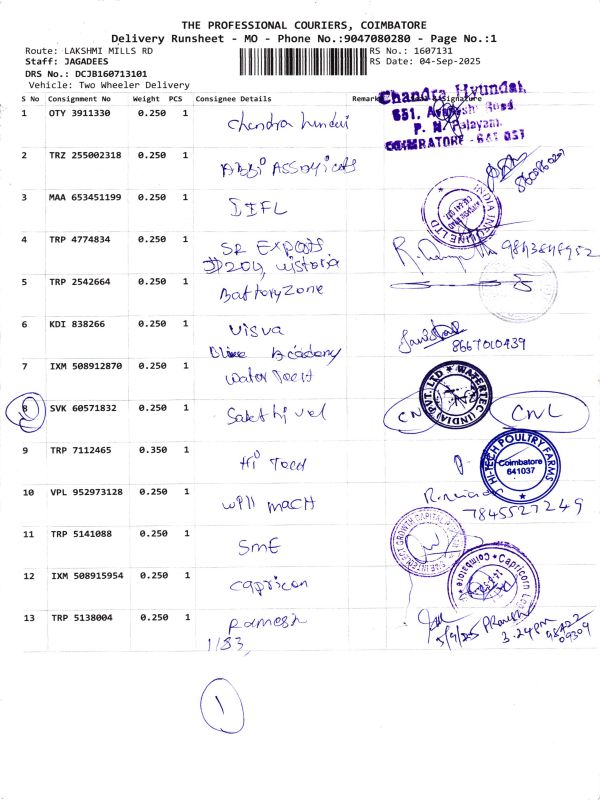 THE PROFESSIONAL COURIERS, COIMBATORE
Delivery Runsheet - MO - Phone No.:9047080280 - Page No.:1
Route: LAKSHMI MILLS RD
RS No.: 1607131
Staff: JAGADEES
RS Date: 04-Sep-2025
DRS No.: DCJB160713101
Vehicle: Two Wheeler Delivery
S No Consignment No Weight PCS Consignee Details Remark Signature
Chandra Hyundai
651, Road
P. N. Palayam
COIMBATORE - 641 037
1 OTY 3911330 0.250 1 Chendra hundai
2 TRZ 255002318 0.250 1
3 MAA 653451199 0.250 1 IIFL
INDIA INFOLINE LTD
4 TRP 4774834 0.250 1 SR Expots
#204, wistoria
5 TRP 2542664 0.250 1 Battory Zone
6 KDI 838266 0.250 1 Visva
Academy
8667010439
7 IXM 508912870 0.250 1 Water Tech
WATERTEC (INDIA) PVT. LTD
8 SVK 60571832 0.250 1 Sakthi vel
CNL CNL
9 TRP 7112465 0.350 1 Hi Teed
HI-TECH POULTRY FARMS
Coimbatore
641037
10 VPL 952973128 0.250 1 wpll macH
7845527249
11 TRP 5141088 0.250 1 SmE
12 IXM 508915954 0.250 1 Capricon
Capricorn
Coimbatore
13 TRP 5138004 0.250 1 Ramesh
1/83,
5/9/25
3.24pm
98422
09309
1